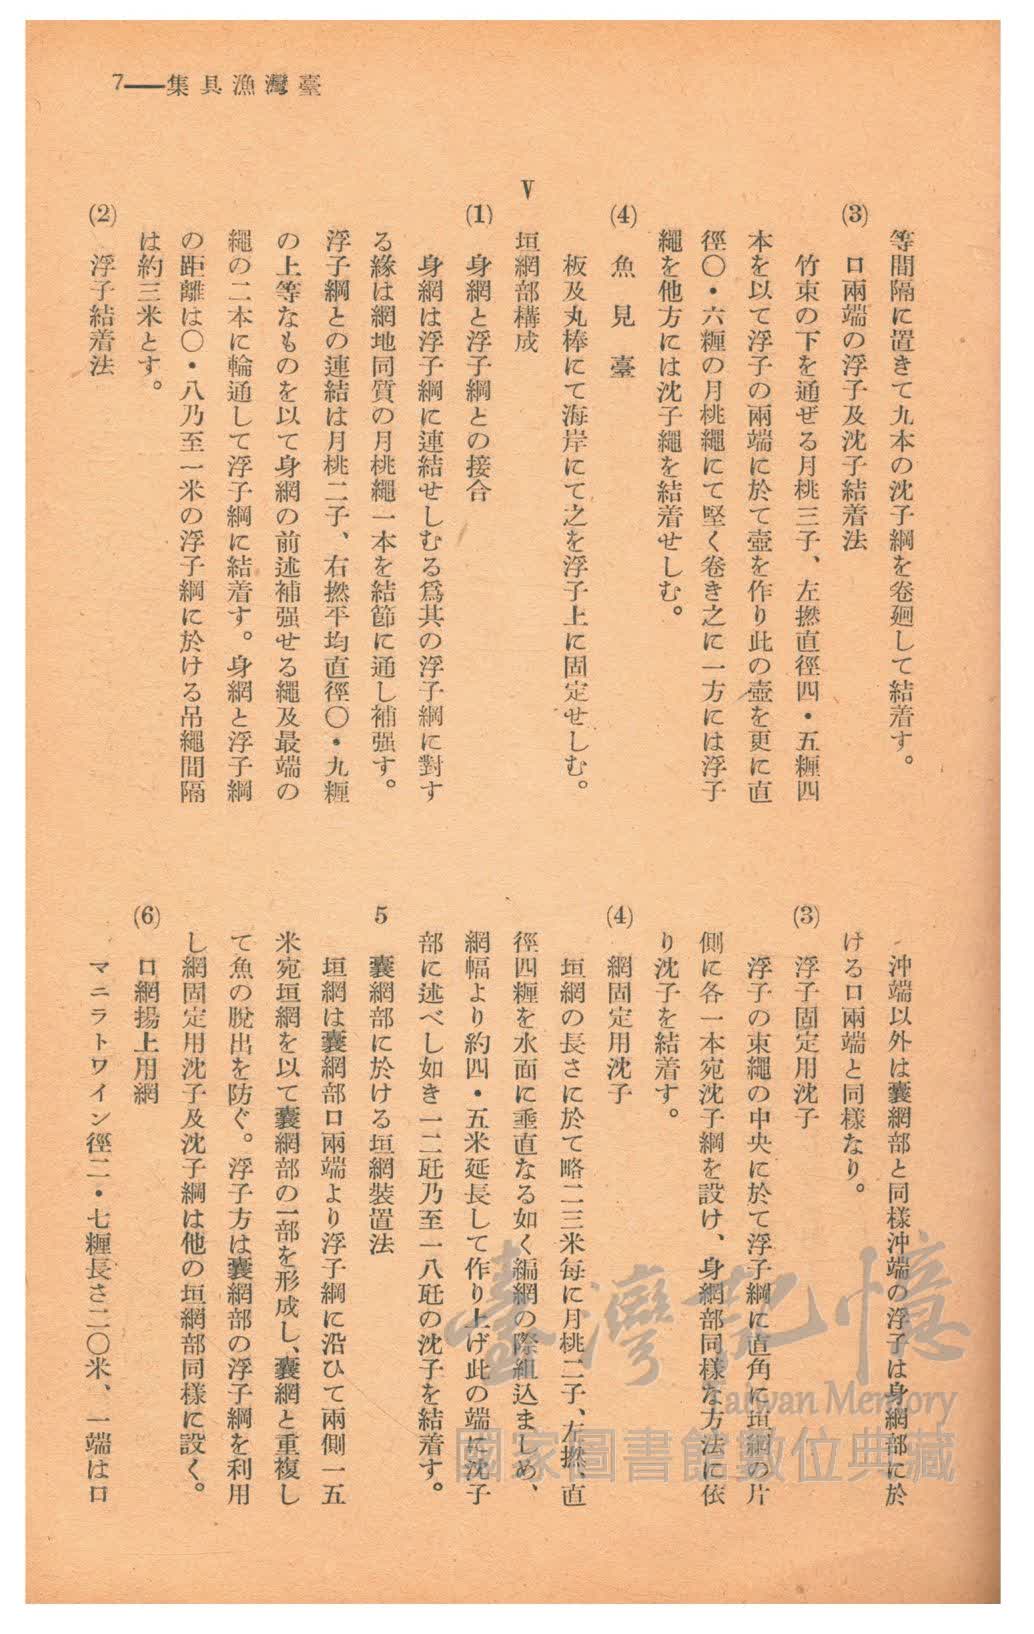 臺灣漁具集——7
等間隔に置きて九本の沈子綱を卷廻して結着す。
(3) 口兩端の浮子及沈子結着法
竹束の下を通ぜる月桃三子、左撚直徑四・五糎四
本を以て浮子の兩端に於て壺を作り此の壺を更に直
徑〇・六糎の月桃繩にて堅く卷き之に一方には浮子
繩を他方には沈子繩を結着せしむ。
(4) 魚見臺
板及丸棒にて海岸にて之を浮子上に固定せしむ。
V 垣網部構成
(1) 身網と浮子綱との接合
身網は浮子綱に連結せしむる爲其の浮子綱に對す
る緣は網地同質の月桃繩一本を結節に通し補强す。
浮子綱との連結は月桃二子、右撚平均直徑〇・九糎
の上等なものを以て身網の前述補强せる繩及最端の
繩の二本に輪通して浮子綱に結着す。身網と浮子綱
の距離は〇・八乃至一米の浮子綱に於ける吊繩間隔
は約三米とす。
(2) 浮子結着法
沖端以外は囊網部と同樣沖端の浮子は身網部に於
ける口兩端と同樣なり。
(3) 浮子固定用沈子
浮子の束繩の中央に於て浮子綱に直角に垣網の片
側に各一本宛沈子綱を設け、身網部同樣な方法に依
り沈子を結着す。
(4) 網固定用沈子
垣網の長さに於て略二三米每に月桃二子、左撚、直
徑四糎を水面に垂直なる如く編網の際組込ましめ、
網幅より約四・五米延長して作り上げ此の端に沈子
部に述べし如き一二瓩乃至一八瓩の沈子を結着す。
5 囊網部に於ける垣網裝置法
垣網は囊網部口兩端より浮子綱に沿ひて兩側一五
米宛垣網を以て囊網部の一部を形成し、囊網と重複し
て魚の脫出を防ぐ。浮子方は囊網部の浮子綱を利用
し網固定用沈子及沈子綱は他の垣網部同樣に設く。
(6) 口網揚上用網
マニラトワイン徑二・七糎長さ二〇米、一端は口
臺灣記憶
Taiwan Memory
國家圖書館數位典藏